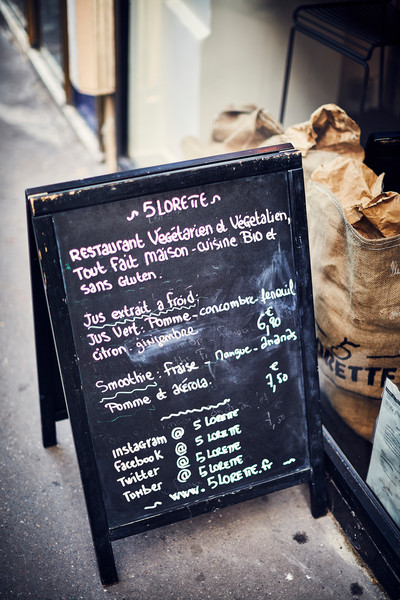 ~ 5 LORETTE ~
RESTAURANT Végétarien et Végétalien,
Tout fait Maison - cuisine BIO et
sans Gluten.
Jus extrait a froid:
Jus Vert: Pomme - concombre - fenouil
citron gingembre
6,90 €
Smoothie: fraise - Mangue - Ananas
Pomme et acérola.
7,50 €
INSTAGRAM @ 5 LORETTE
FaceBOOK @ 5 LORETTE
Twitter @ 5 LORETTE
TUMBER @ 5 LORETTE
~ www.5LORETTE.fr ~
5
LORETTE